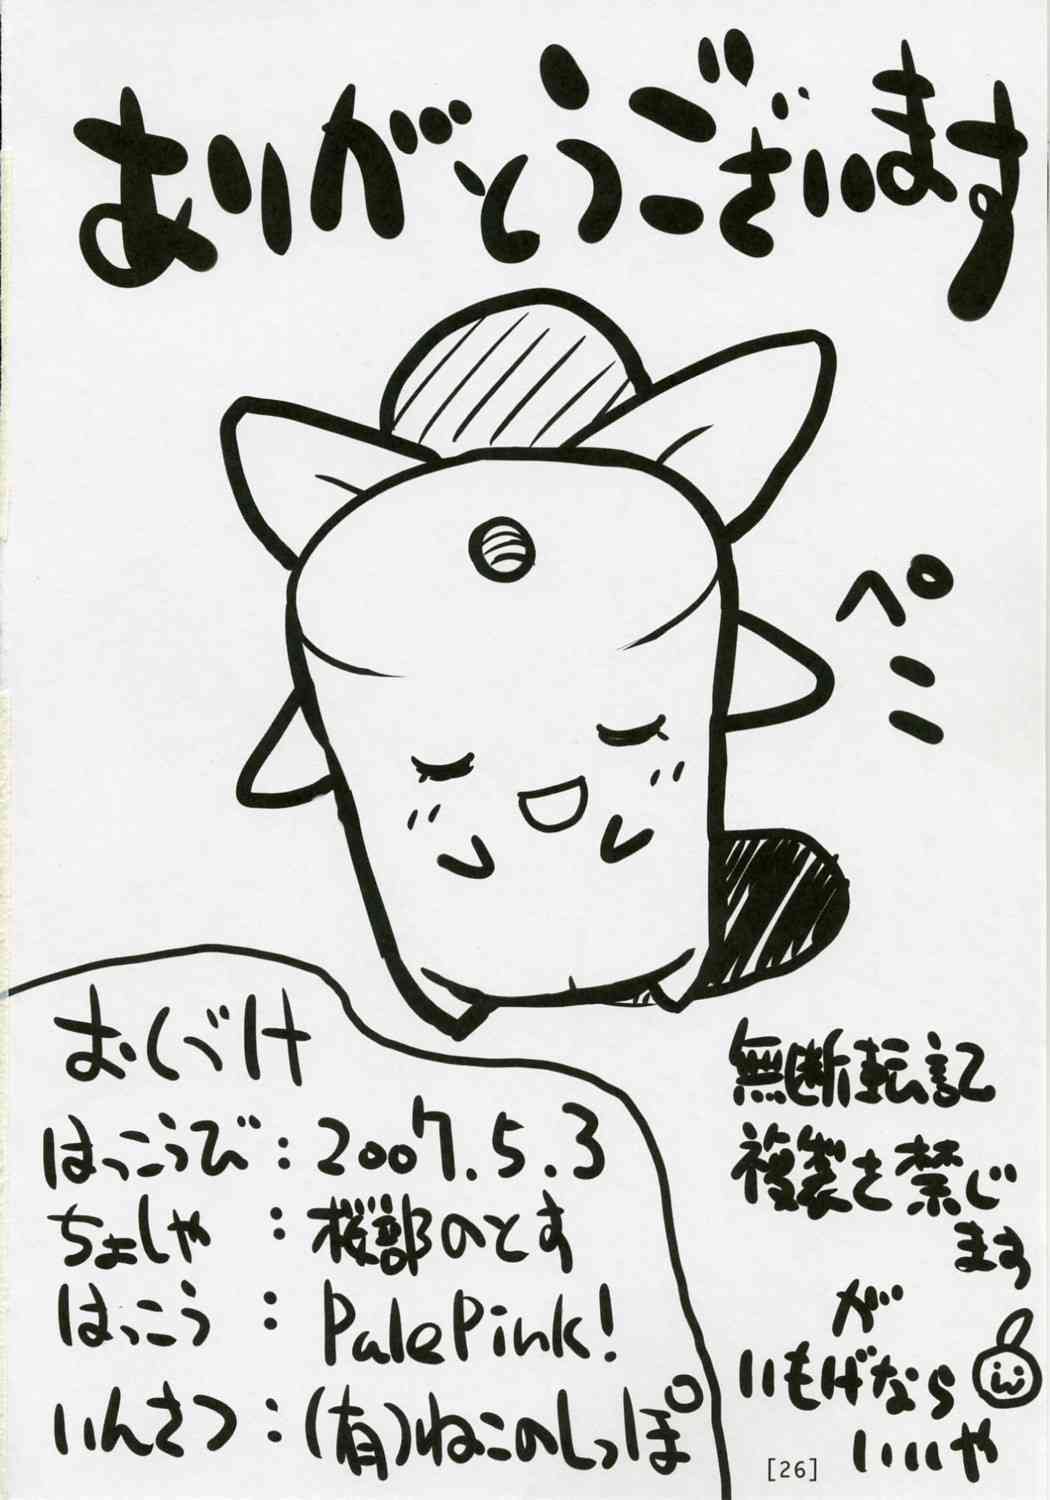 ありがとうございます
ペこ
おくづけ
はっこうび：2007.5.3
ちょしゃ：桜部のとす
はっこう：PalePink!
いんさつ：(有)ねこのしっぽ
無断転記
複製を禁じ
ます
が
いもげなら
いいや
[26]